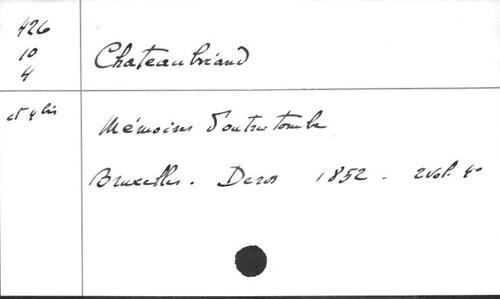 426
10
4
Chateaubriand
et 4 bis
Mémoires d'outre tombe
Bruxelles. Deros 1852 - 2 vol. 4o